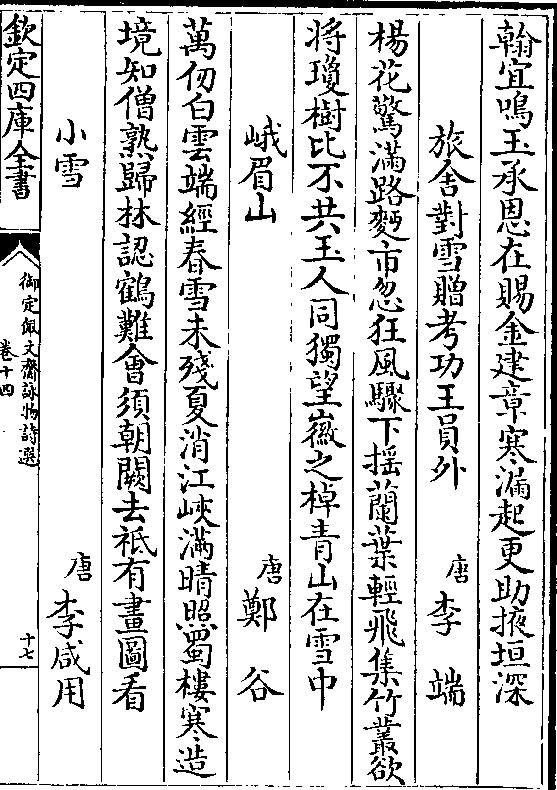 翰宜鳴玉承恩在賜金建章寒漏起更助掖垣深
旅舍對雪贈考功王員外 唐 李端
楊花驚滿路麪市忽狂風驟下摇蘭葉輕飛集竹叢欲
将瓊樹比不共玉人同獨望徽之棹青山在雪中
峨眉山 唐 鄭谷
萬仞白雲端經春雪未殘夏消江峽滿晴照蜀樓寒造
境知僧熟歸林認鶴難會須朝闕去祗有畫圖看
小雪 唐 李咸用
欽定四庫全書 御定佩文齋詠物詩選 卷十四 十七